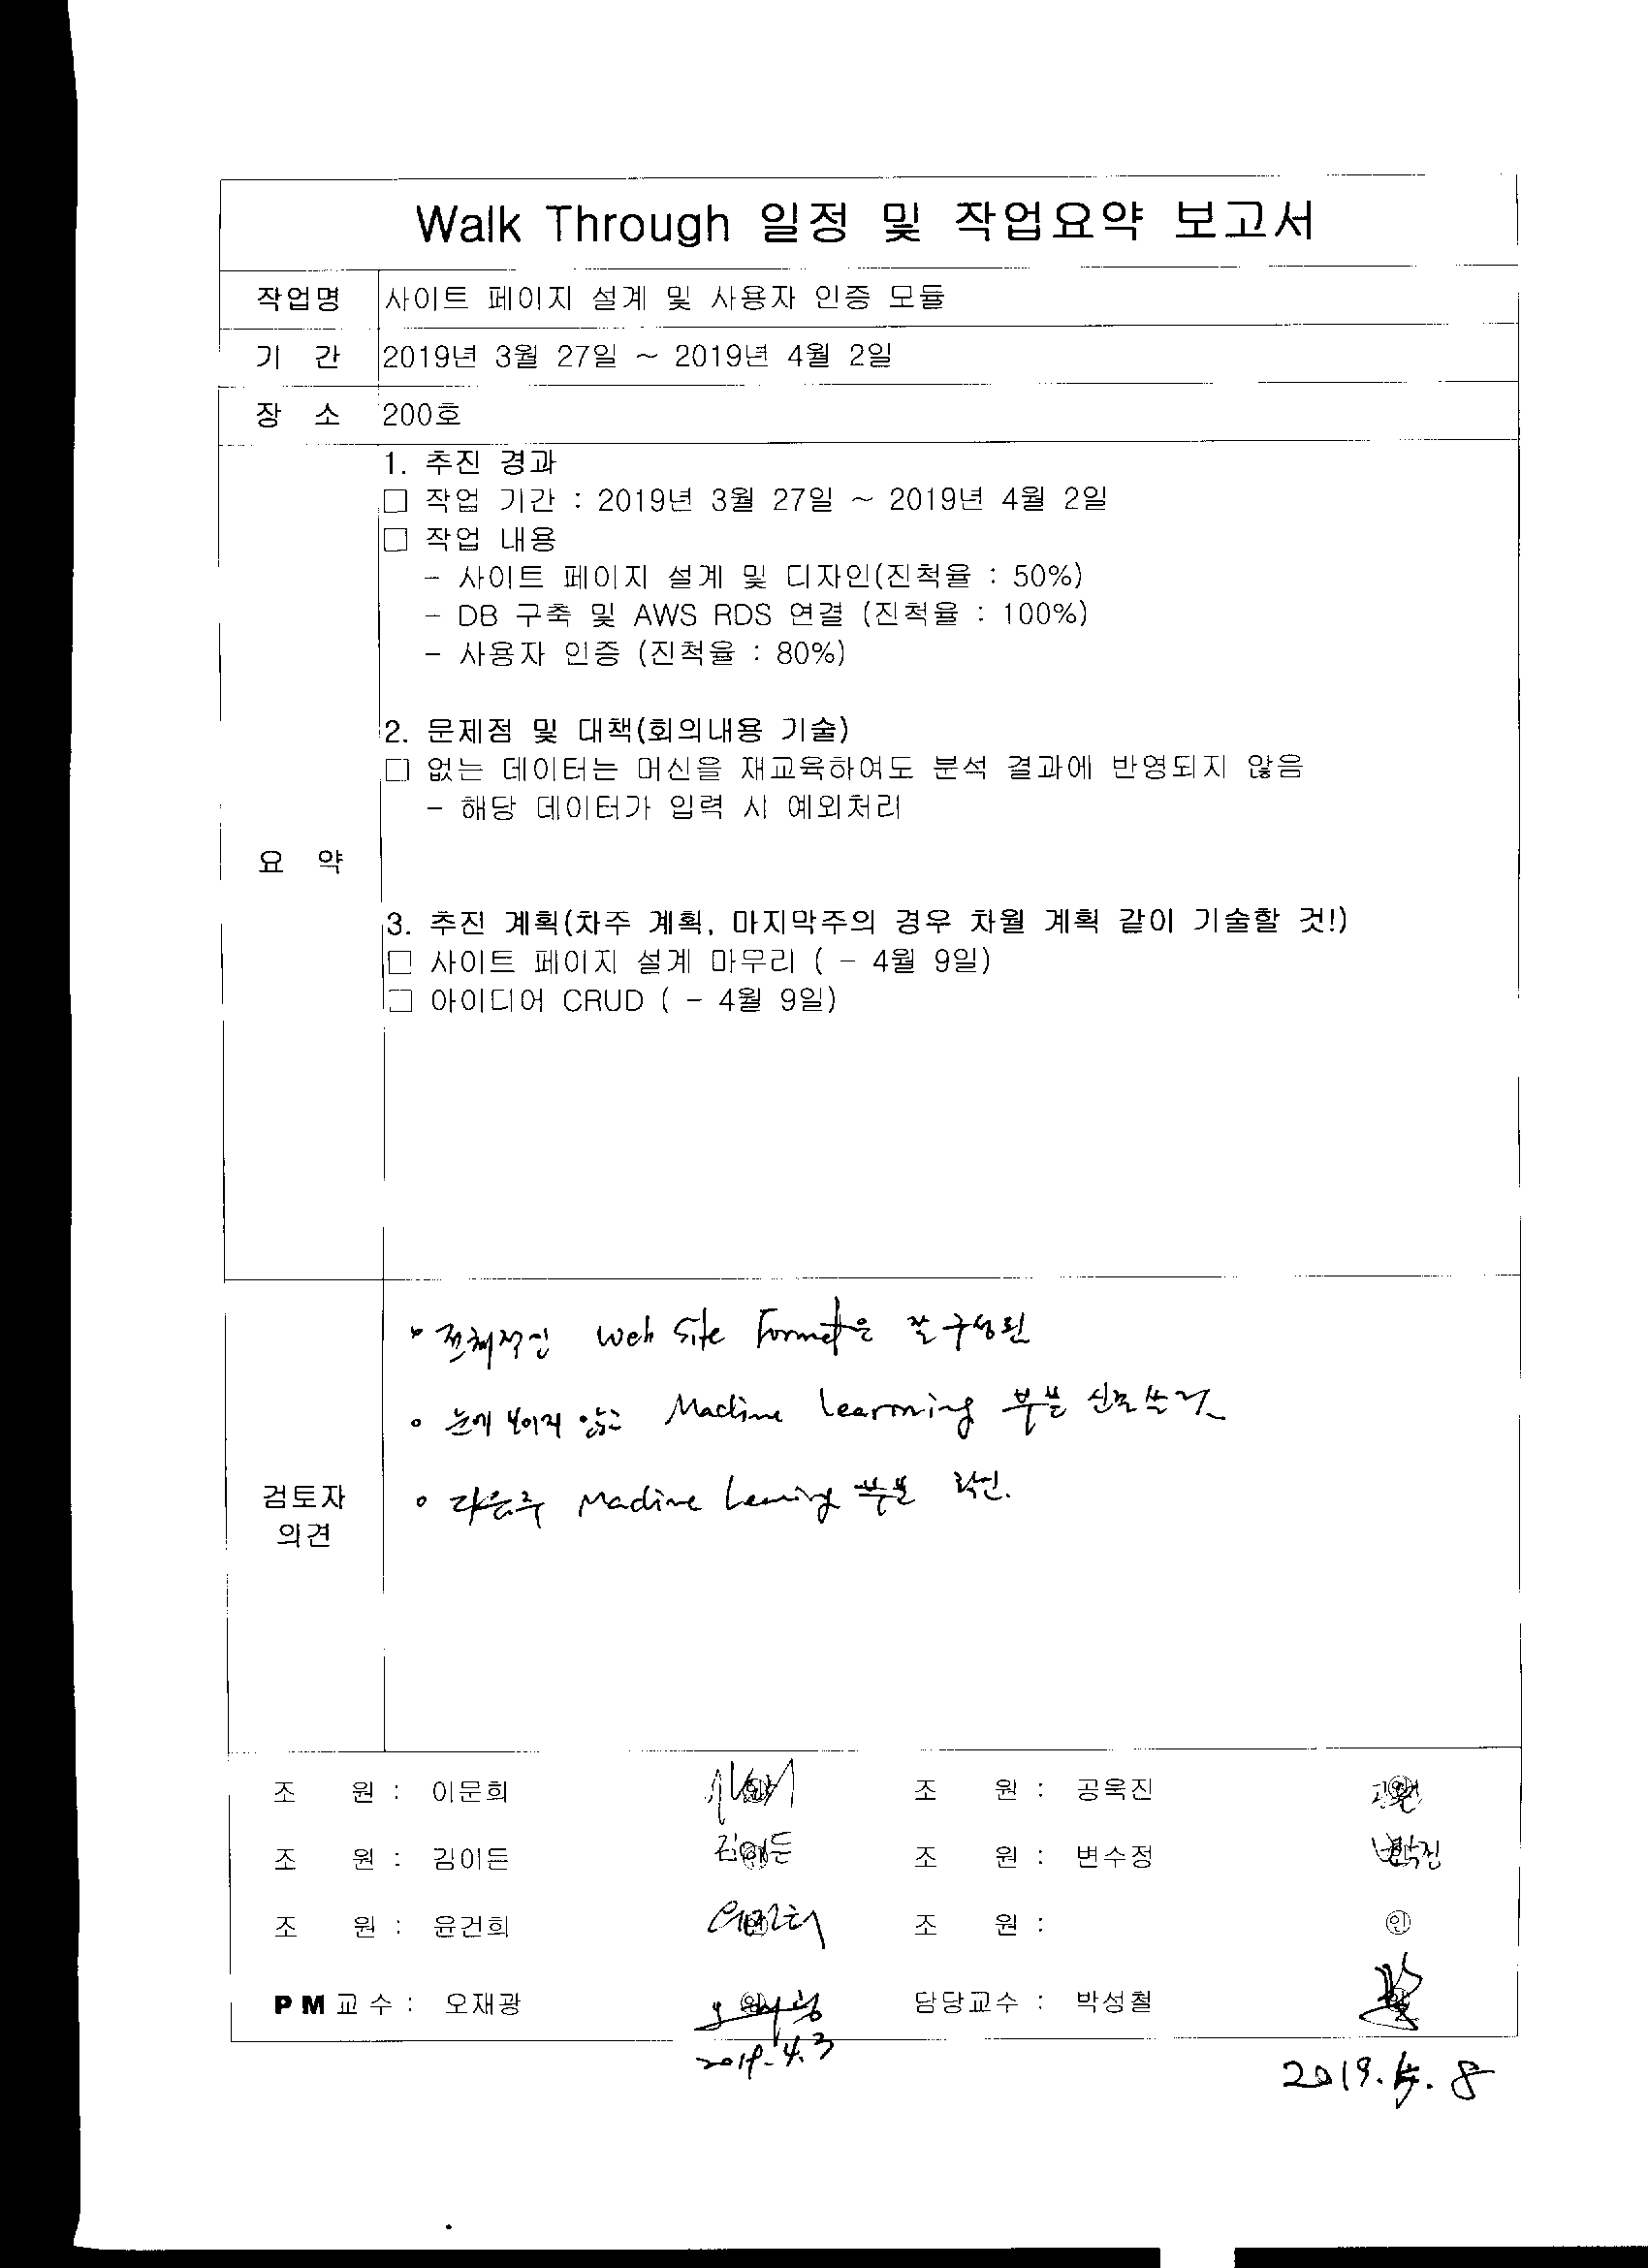 Walk Through 일정 및 작업요약 보고서
작업명 사이트 페이지 설계 및 사용자 인증 모듈
기 간 2019년 3월 27일 ~ 2019년 4월 2일
장 소 200호
요 약
1. 추진 경과
□ 작업 기간 : 2019년 3월 27일 ~ 2019년 4월 2일
□ 작업 내용
- 사이트 페이지 설계 및 디자인(진척율 : 50%)
- DB 구축 및 AWS RDS 연결 (진척율 : 100%)
- 사용자 인증 (진척율 : 80%)
2. 문제점 및 대책(회의내용 기술)
□ 없는 데이터는 머신을 재교육하여도 분석 결과에 반영되지 않음
- 해당 데이터가 입력 시 예외처리
3. 추진 계획(차주 계획, 마지막주의 경우 차월 계획 같이 기술할 것!)
□ 사이트 페이지 설계 마무리 ( - 4월 9일)
□ 아이디어 CRUD ( - 4월 9일)
검토자
의견
◦ 전체적인 Web Site Format은 잘 구성된
◦ 눈에 보이지 않는 Machine Learning 부분
◦ 다음주 Machine Learning 부분 확인.
조 원 : 이문희 조 원 : 공욱진
조 원 : 김이든 김이든 조 원 : 변수정
조 원 : 윤건희 조 원 : 인
PM교수 : 오재광 오재광 담당교수 : 박성철
2019. 4. 3
2019. 4. 8